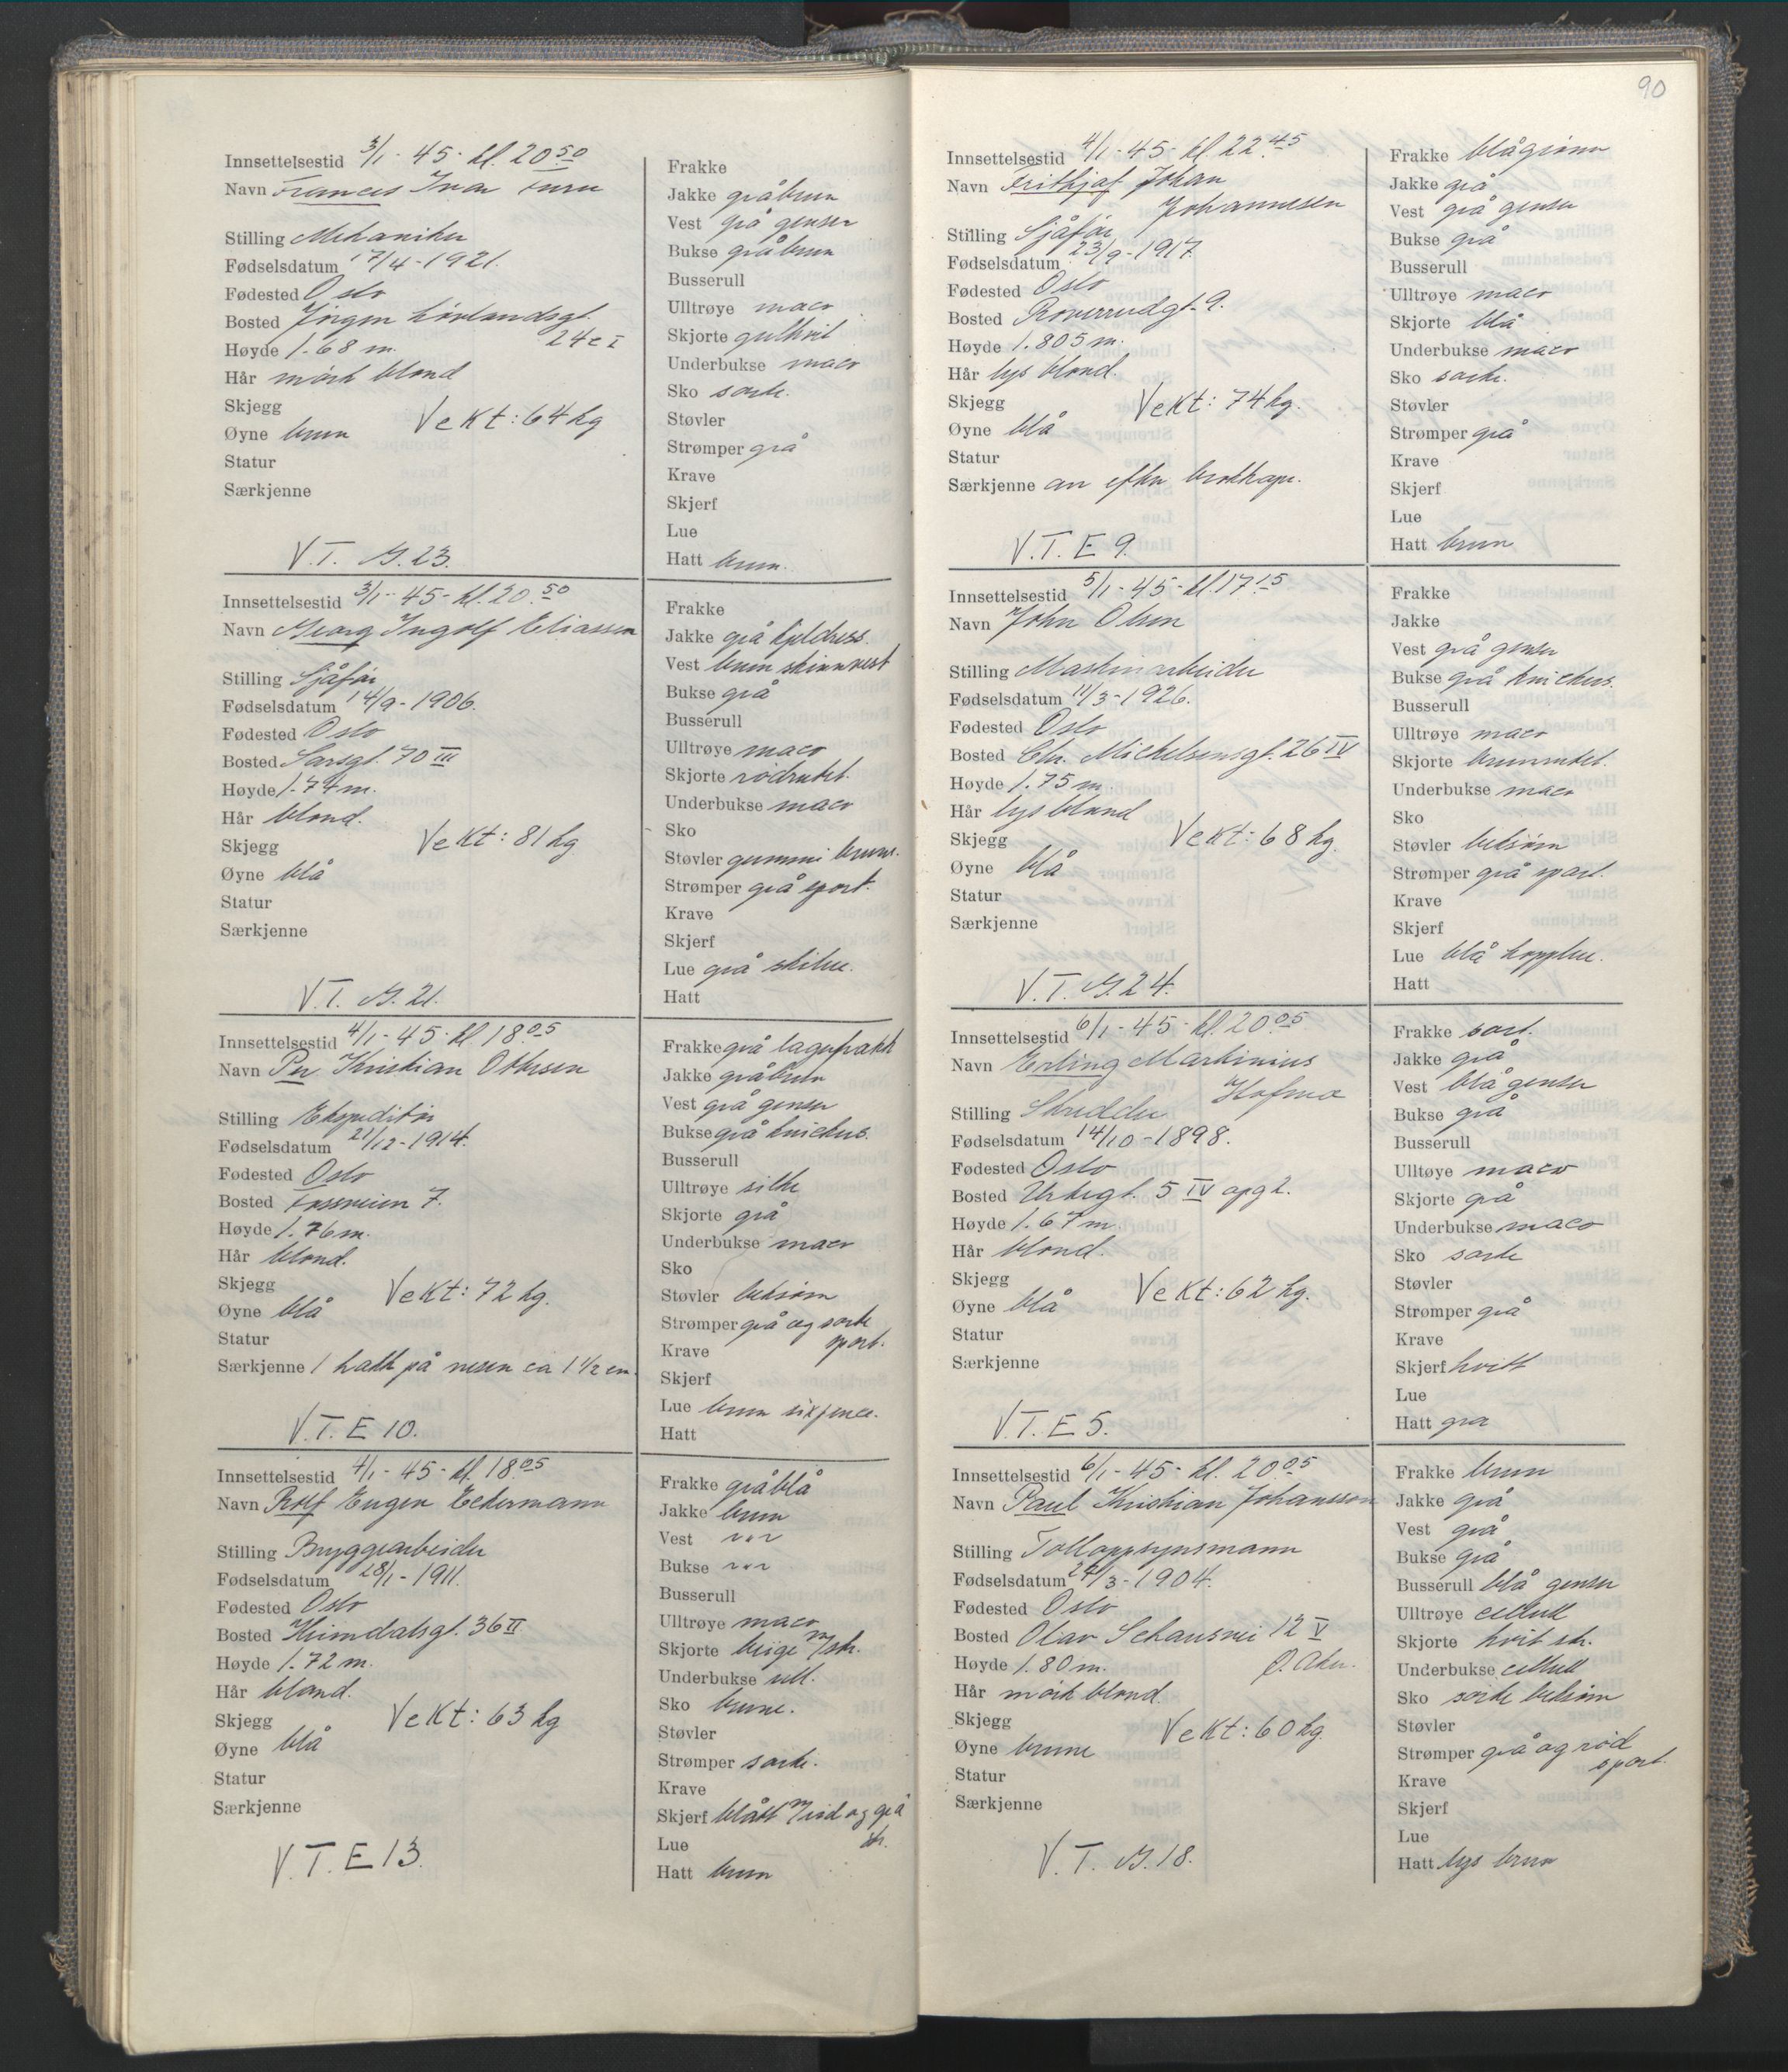 Innsettelsestid 3/1 - 45 - kl. 20 50
Navn Frances Ivar Furu
Stilling Mekaniker
Fødselsdatum 17/4 - 1921.
Fødested Oslo
Bosted Jørgen Løvlandsgt.
24 c I
Høyde 1.68 m.
Hår mörk blond
Skjegg
Vekt: 64 kg
Øyne brun
Statur
Særkjenne
V.T. G.23.
Frakke
Jakke gråbrun
Vest grå genser
Bukse gråbrun
Busserull
Ulltrøye maco
Skjorte gulhvit
Underbukse maco
Sko sorte.
Støvler
Strømper grå
Krave
Skjerf
Lue
Hatt brun.
Innsettelsestid 3/1 - 45 - kl. 20.50
Navn Georg Ingolf Eliassen
Stilling Sjåför
Fødselsdatum 14/9 - 1906.
Fødested Oslo
Bosted Sarsgt. 70 III
Høyde 1.74 m.
Hår blond.
Skjegg
Vekt: 81 kg
Øyne blå
Statur
Særkjenne
V.T. G.21.
Frakke
Jakke grå kjeldress.
Vest brun skinnvest
Bukse grå
Busserull
Ulltrøye maco
Skjorte rödrutet.
Underbukse maco
Sko
Støvler gummi brune.
Strømper grå sport.
Krave
Skjerf
Lue grå skilue.
Hatt
Innsettelsestid 4/1 - 45 - kl 18.05
Navn Per Kristian Ottesen
Stilling Ekspeditör
Fødselsdatum 21/12 - 1914.
Fødested Oslo
Bosted 7.
Høyde 1.76 m.
Hår blond.
Skjegg
Vekt: 72 kg.
Øyne blå
Statur
Særkjenne 1 hakk på nesen ca 1 1/2 cm.
V.T. E 10.
Frakke grå lagerfrakk
Jakke gråbrun
Vest grå genser
Bukse grå knickers.
Busserull
Ulltrøye silke
Skjorte grå
Underbukse maco
Sko
Støvler beksöm
Strømper grå og sorte
sport.
Krave
Skjerf
Lue brun sixpence.
Hatt
Innsettelsestid 4/1 - 45 - kl. 18.05
Navn Rolf Eugen Eckermann
Stilling Bryggearbeider
Fødselsdatum 28/1 - 1911.
Fødested Oslo
Bosted Heimdalsgt. 36 II
Høyde 1.72 m.
Hår blond.
Skjegg
Vekt: 63 kg
Øyne blå
Statur
Særkjenne
V.T. E 13.
Frakke gråblå
Jakke brun
Vest ~"~
Bukse ~"~
Busserull
Ulltrøye maco
Skjorte beige m/str.
Underbukse ull.
Sko brune.
Støvler
Strømper sorte.
Krave
Skjerf blått m/röd og grå
str.
Lue
Hatt brun
90
Innsettelsestid 4/1 - 45 - kl. 22.45
Navn Frithjof Johan
Johannesen
Stilling Sjåför
Fødselsdatum 23/9 - 1917.
Fødested Oslo
Bosted 9.
Høyde 1.805 m.
Hår lys blond.
Skjegg
Vekt: 74 kg.
Øyne blå
Statur
Særkjenne arr efter brokkopr.
V.T. E 9.
Frakke blågrönn
Jakke grå
Vest grå genser
Bukse grå
Busserull
Ulltrøye maco
Skjorte blå
Underbukse maco
Sko sorte.
Støvler
Strømper grå
Krave
Skjerf
Lue
Hatt brun
Innsettelsestid 5/1 - 45 - kl. 17 15
Navn John Olsen
Stilling Maskinarbeider
Fødselsdatum 11/3 - 1926.
Fødested Oslo
Bosted Chr. Michelsensgt. 26 IV
Høyde 1.75 m.
Hår lys blond
Skjegg
Vekt: 68 kg.
Øyne blå
Statur
Særkjenne
V.T. G.24.
Frakke
Jakke
Vest grå genser
Bukse grå knickers.
Busserull
Ulltrøye maco
Skjorte brunrutet.
Underbukse maco
Sko
Støvler beksöm
Strømper grå sport.
Krave
Skjerf
Lue blå topplue.
Hatt
Innsettelsestid 6/1 - 45 - kl. 20.05
Navn Erling Martinius
Hofmo
Stilling Skredder
Fødselsdatum 14/10 - 1898.
Fødested Oslo
Bosted Urtegt. 5 IV opg 2.
Høyde 1.67 m
Hår blond.
Skjegg
Vekt: 62 kg.
Øyne blå
Statur
Særkjenne
V.T. E 5.
Frakke sort.
Jakke grå
Vest blå genser
Bukse grå
Busserull
Ulltøye maco
Skjorte grå
Underbukse maco
Sko sorte
Støvler
Strømper grå
Krave
Skjerf hvitt
Lue
Hatt grå
Innsettelsestid 6/1 - 45 - kl. 20.05
Navn Paul Kristian Johansson
Stilling Tolloppsynsmann
Fødselsdatum 24/3 - 1904.
Fødested Oslo
Bosted Olav Schousvei 12 V
Ö. Aker.
Høyde 1.80 m.
Hår mörk blond.
Skjegg
Vekt: 60 kg.
Øyne brune
Statur
Særkjenne
V.T. G.18.
Frakke brun
Jakke grå
Vest grå
Bukse grå
Busserull blå genser
Ulltrøye cellull
Skjorte hvit str.
Underbukse cellull
Sko sorte beksöm
Støvler
Strømper grå og röd
sport.
Krave
Skjerf
Lue
Hatt lys brun